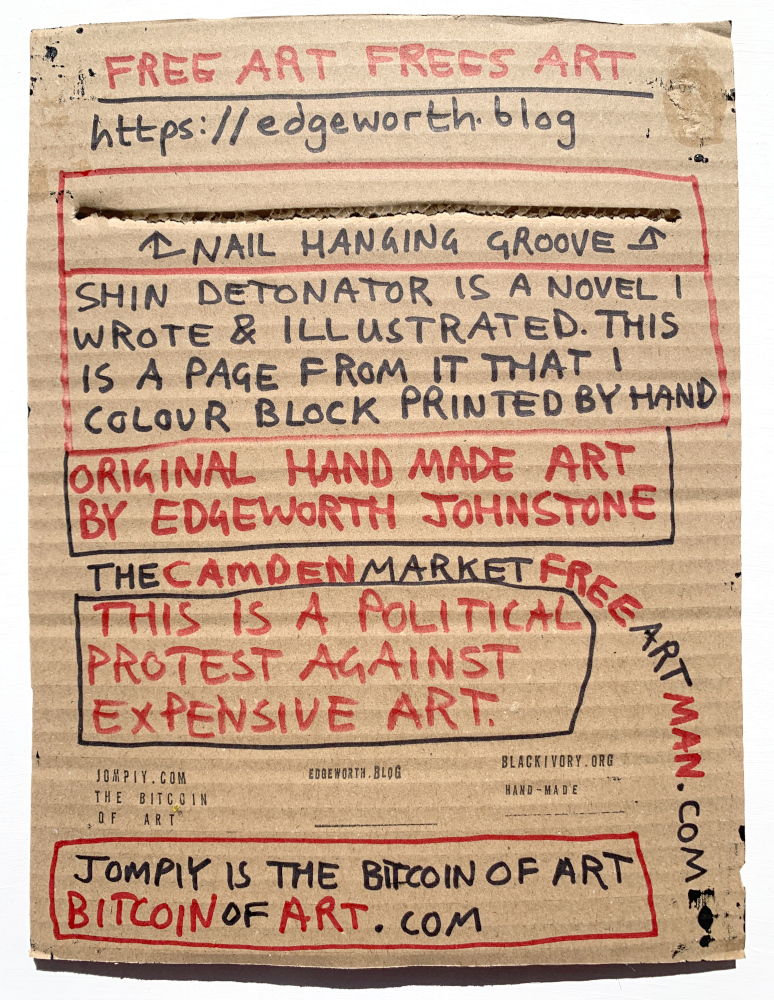 FREE ART FREES ART
https://edgeworth.blog
NAIL HANGING GROOVE
SHIN DETONATOR IS A NOVEL I
WROTE & ILLUSTRATED. THIS
IS A PAGE FROM IT THAT I
COLOUR BLOCK PRINTED BY HAND
ORIGINAL HAND MADE ART
BY EDGEWORTH JOHNSTONE
THECAMDENMARKETFREEARTMAN.COM
THIS IS A POLITICAL
PROTEST AGAINST
EXPENSIVE ART.
JOMPIY.COM
THE BITCOIN
OF ART
EDGEWORTH.BLOG
BLACKIVORY.ORG
HAND-MADE
JOMPIY IS THE BITCOIN OF ART
BITCOINOFART.COM